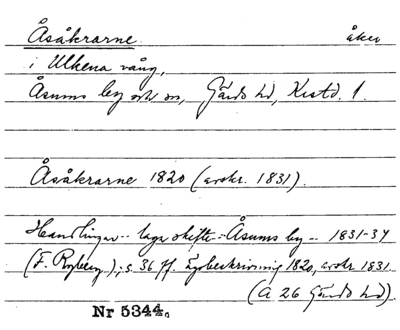 Åsåkrarne. åker
i Ulkena vång,
Åsums by och sn, Gärds hd, Kristd. l.
Åsåkrarne 1820 (avskr. 1831).
Handlingar -- laga skifte -- Åsums by -- 1831-34
(F. Rygberg.); s. 36 ff. Egobeskrivning 1820, avskr. 1831
(A 26 Gärds hd)
Nr 5344.